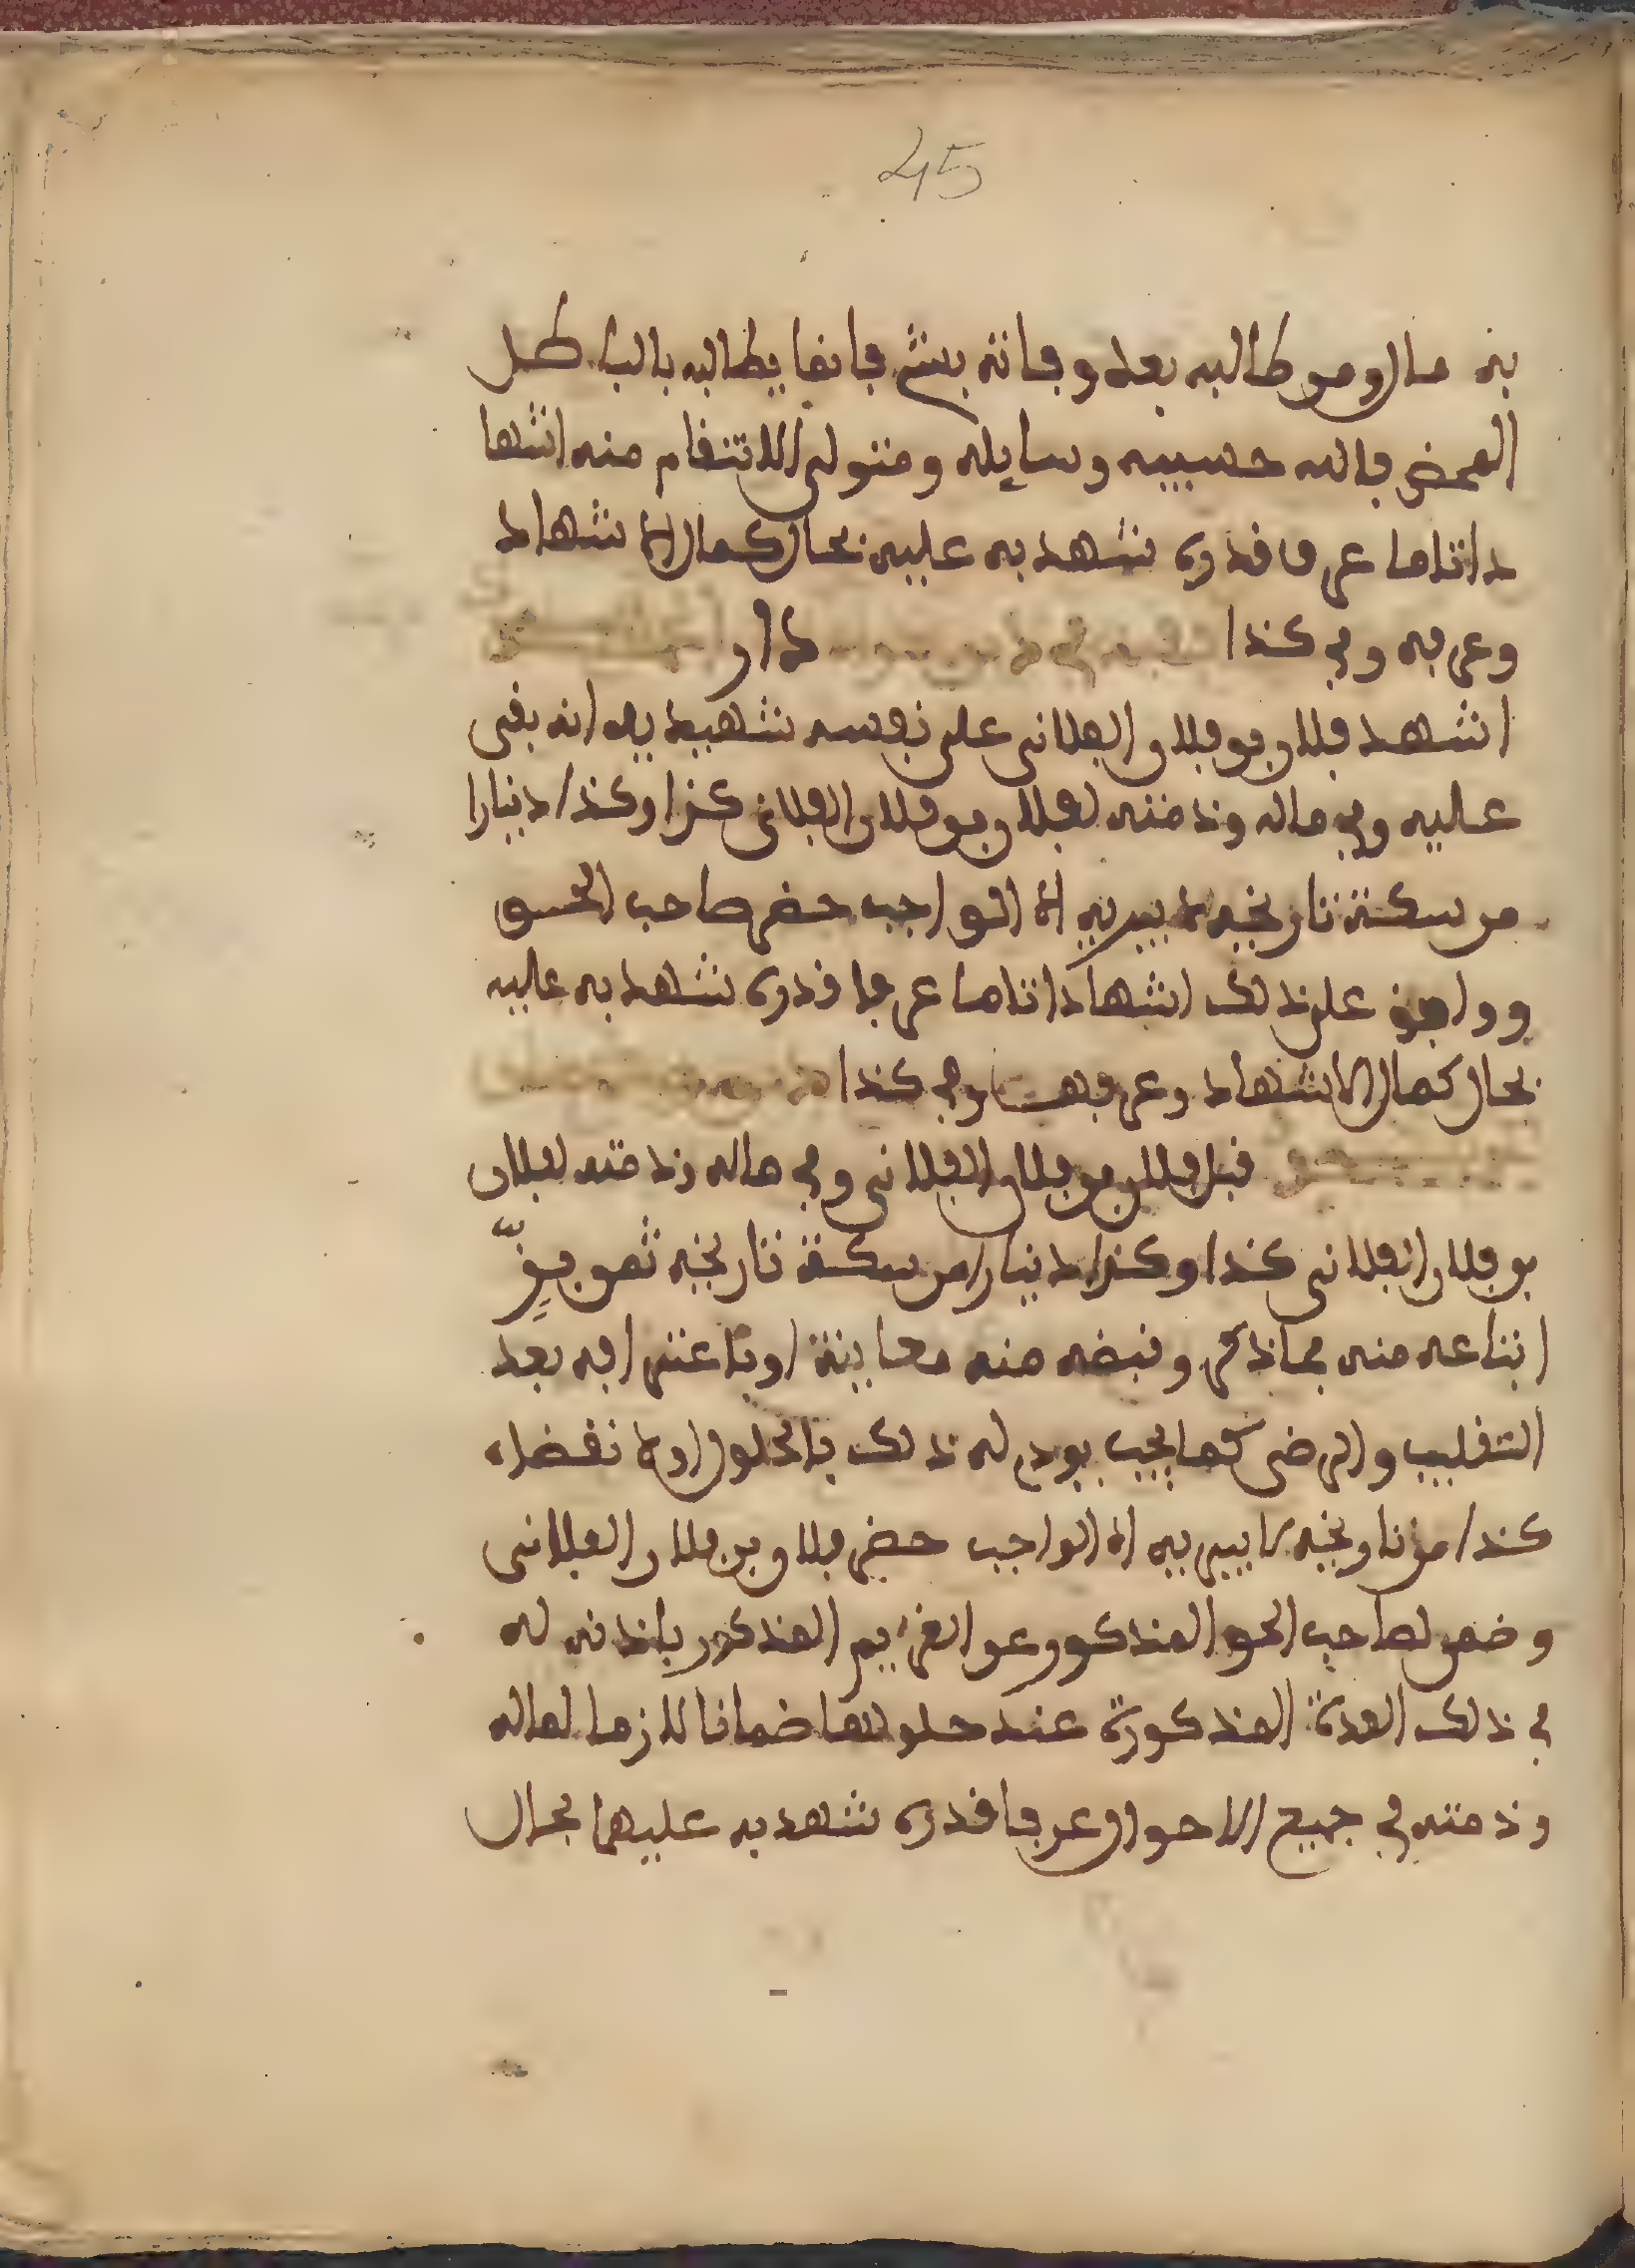 45
بة مال ومن طالبه بعد وفاته بشيء فإنما يطالبه بالباطل
المحض فالله حسيبه وسايله ومتولي الانتقام منه اشها
دا تاما عرفا قدره شهد به عليه بحال كمال الاشهاد
وعرفه وفي كذا
اشهد فلان بن فلان الفلاني على نفسه شهيديه انه بقي
عليه وفي ماله وذمته لفلان بن فلان الفلاني كذا وكذا دينارا
من سكة تاريخه لا يبريه الا الواجب حضر صاحب الحق
ووافق على ذلك اشهادا تاما عرفا قدره شهد به عليه
بحال كمال الاشهاد وعرفهما وفي كذا
قبل فلان بن فلان الفلاني وفي ماله وذمته لفلان
بن فلان الفلاني كذا وكذا دينارا من سكة تاريخه ثمن
ابتاعه منه بما ذكر وقبضه منه معاينة او باعترافه بعد
التقليب والرضى كما يجب يودي له ذلك بالحلول او لانقضاء
كذا من تاريخه لا يبريه الا الواجب حضر فلان بن فلان الفلاني
وضمن لصاحب الحق المذكور عن الغريم المذكور باذنه له
في ذلك العدة المذكورة عند حلولها ضمانا لازما لماله
وذمته في جميع الاحوال عرفا قدره شهد به عليهما بحال